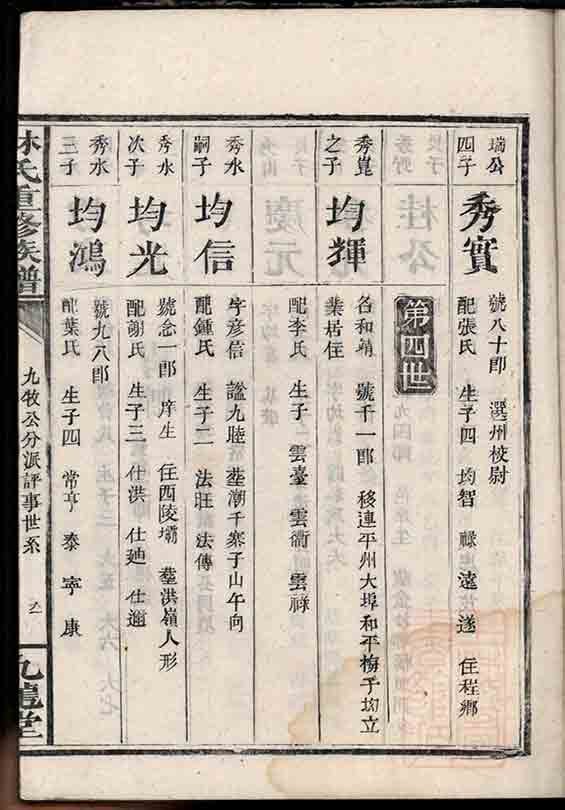 瑞公
四子
秀實
號八十郎 選州校尉
配張氏 生子四 均智 祿 遠 遂 住程鄉
第四世
秀崑
之子
均輝
名和靖 號千一郎 移連平州大埠和平梅子均立
業居住
配李氏 生子 雲臺 雲衢 雲祿
秀水
嗣子
均信
字彥信 諡九睦 塟潮千寨子山午向
配鍾氏 生子二 法旺 法傳
秀水
次子
均光
號念一郎 庠生 住西陵壩 塟洪嶺人形
配謝氏 生子三 仕洪 仕廸 仕邇
秀水
三子
均鴻
號九八郎
配葉氏 生子四 常 亨 泰 寧 康
林氏重修族譜
九牧公分派評事世系
九龍堂